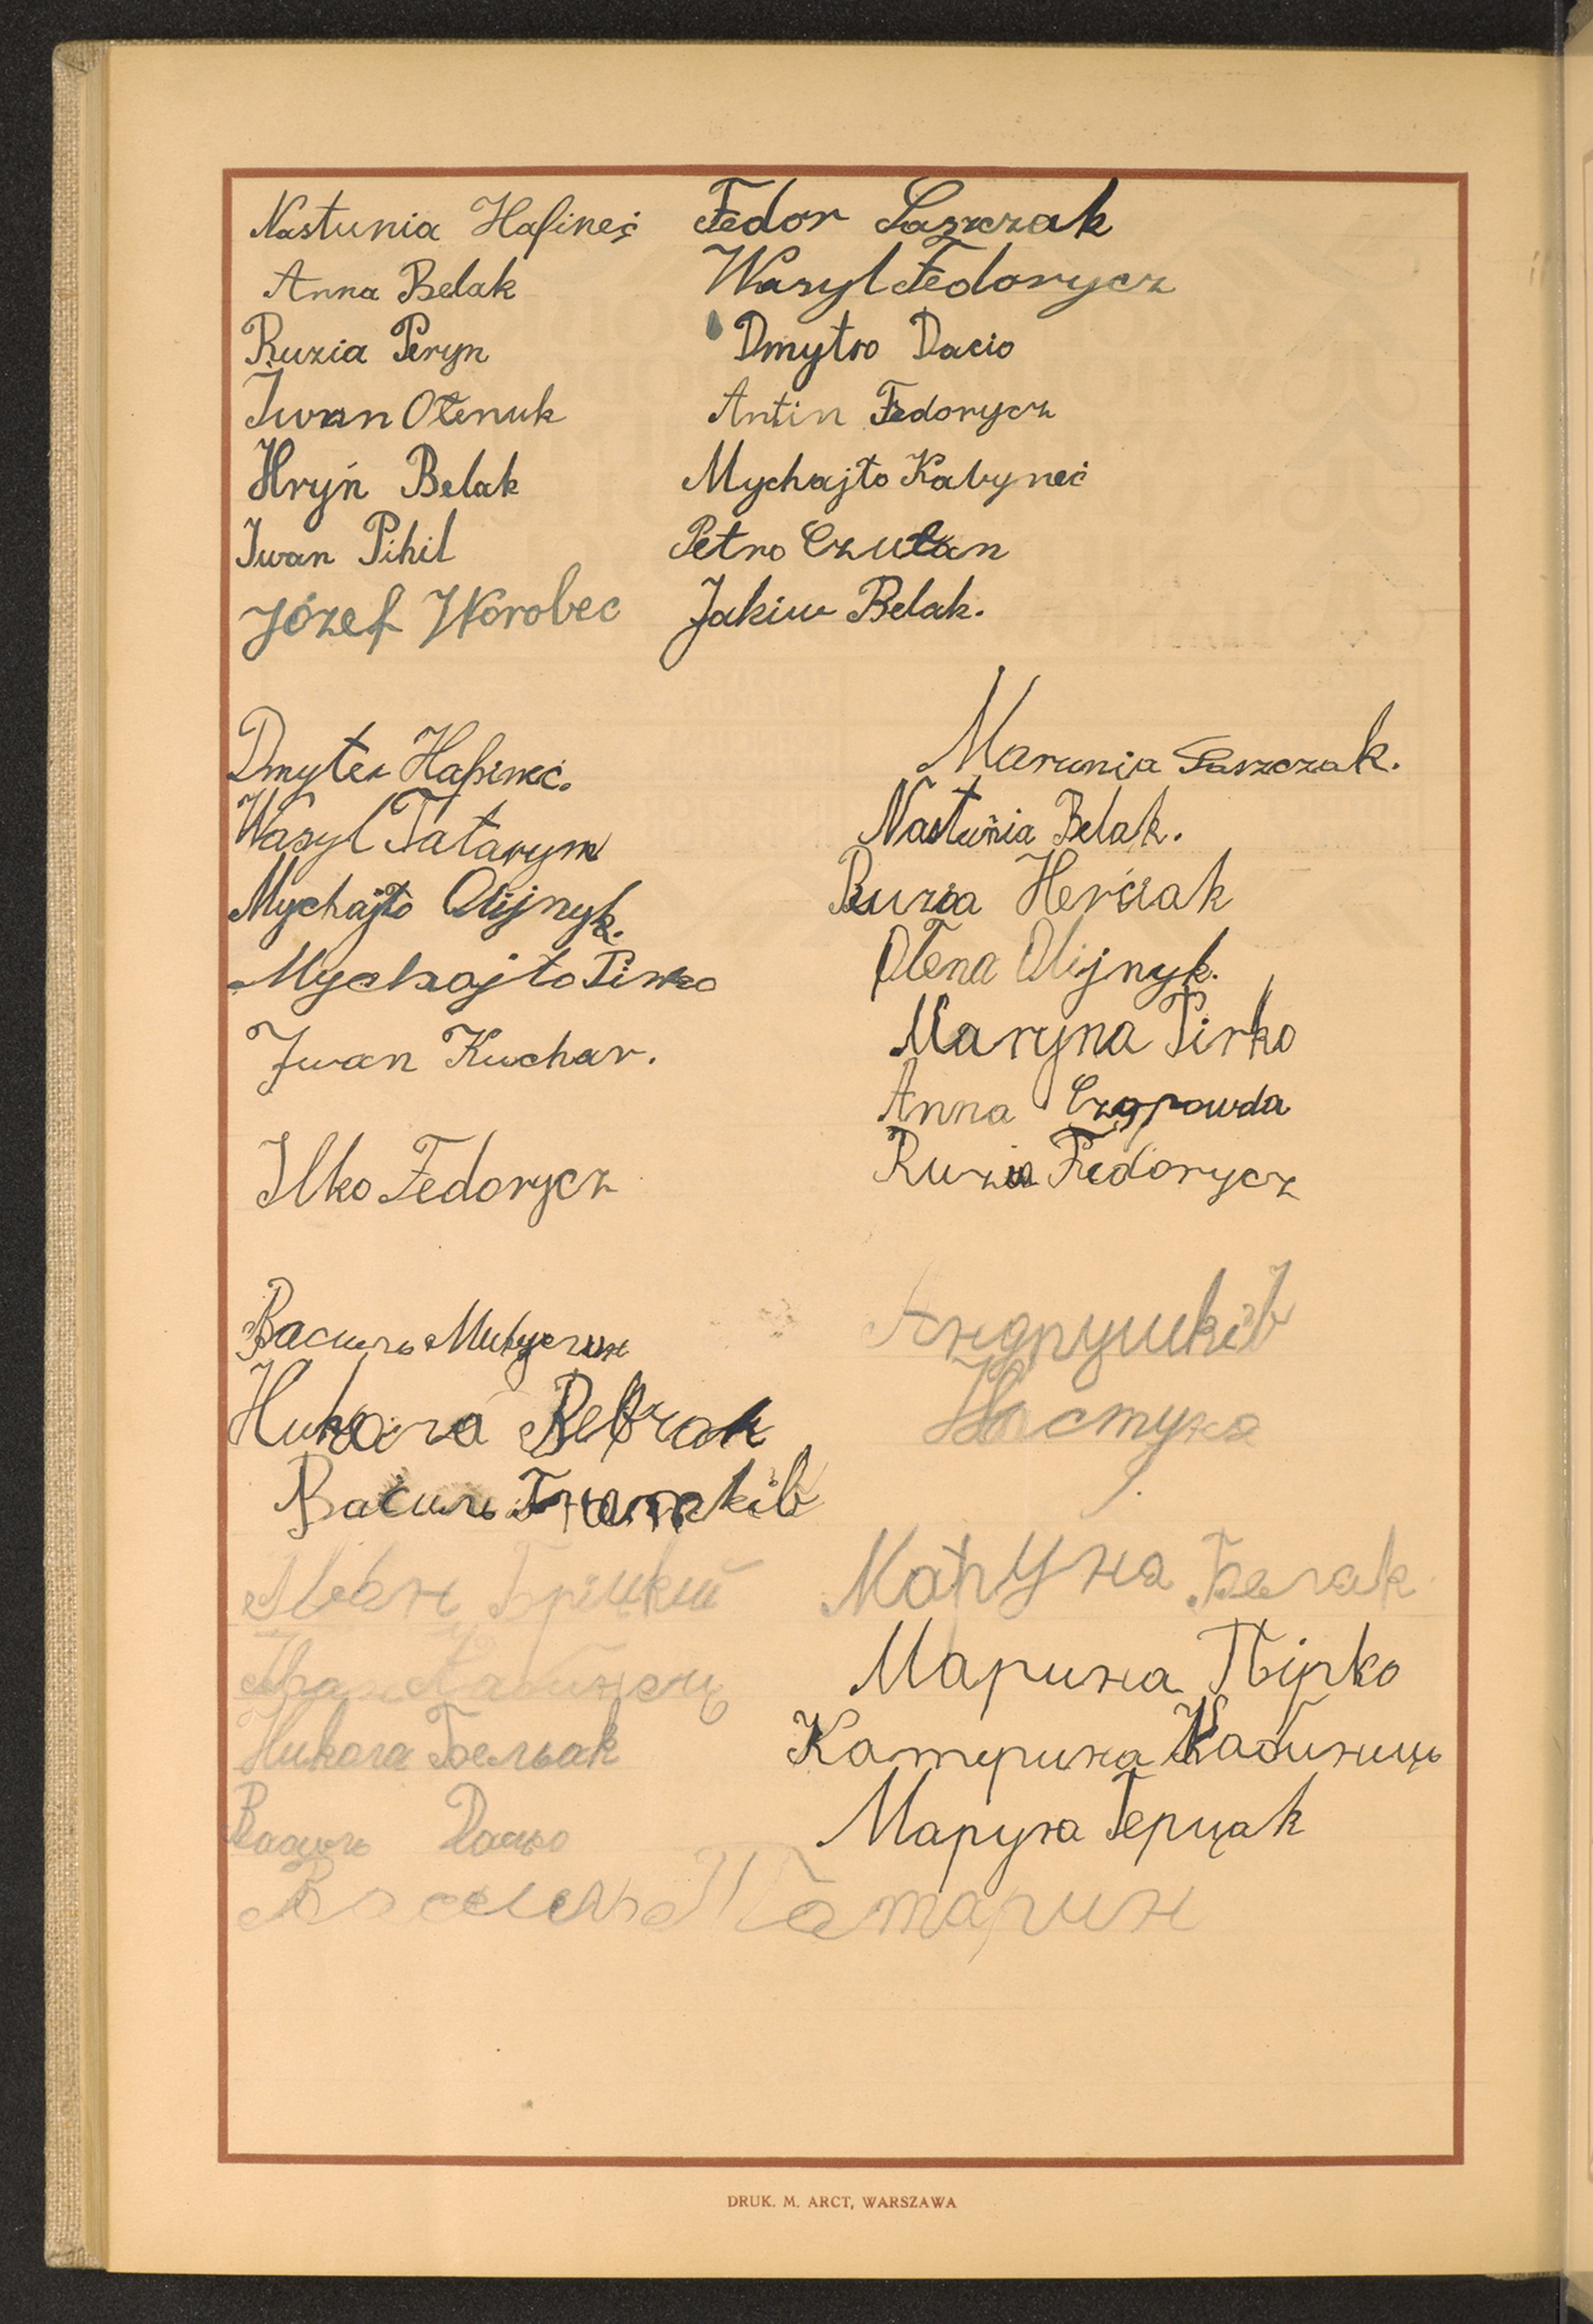 Nastunia Hafineć
Anna Belak
Ruzia Peryn
Iwan Ołenuk
Hryń Belak
Iwan Pihil
Józef Worobec
Fedor Laszczak
Wasyl Fedorycz
Dmytro Dacio
Antin Fedorycz
Mychajło Kabyneć
Petro Czułan
Jakiw Belak.
Dmyter Hafineć.
Wasyl Tataryn
Mychajło Olijnyk.
Mychajło Pirko
Iwan Kuchar.
Ilko Fedorycz
Marunia Laszczak.
Nastunia Belak.
Ruzia Herciak
Ołena Olijnyk.
Maryna Pirko
Anna
Ruzia Fedorycz
Василь
Микола
Василь
Іван
Микола Бельак
Василь Дацьо
Андрушків
Настуня
Маруня Белак
Марина Пірко
Катерина Кабинець
Маруня Герцак
Василь Татарин
DRUK. M. ARCT, WARSZAWA